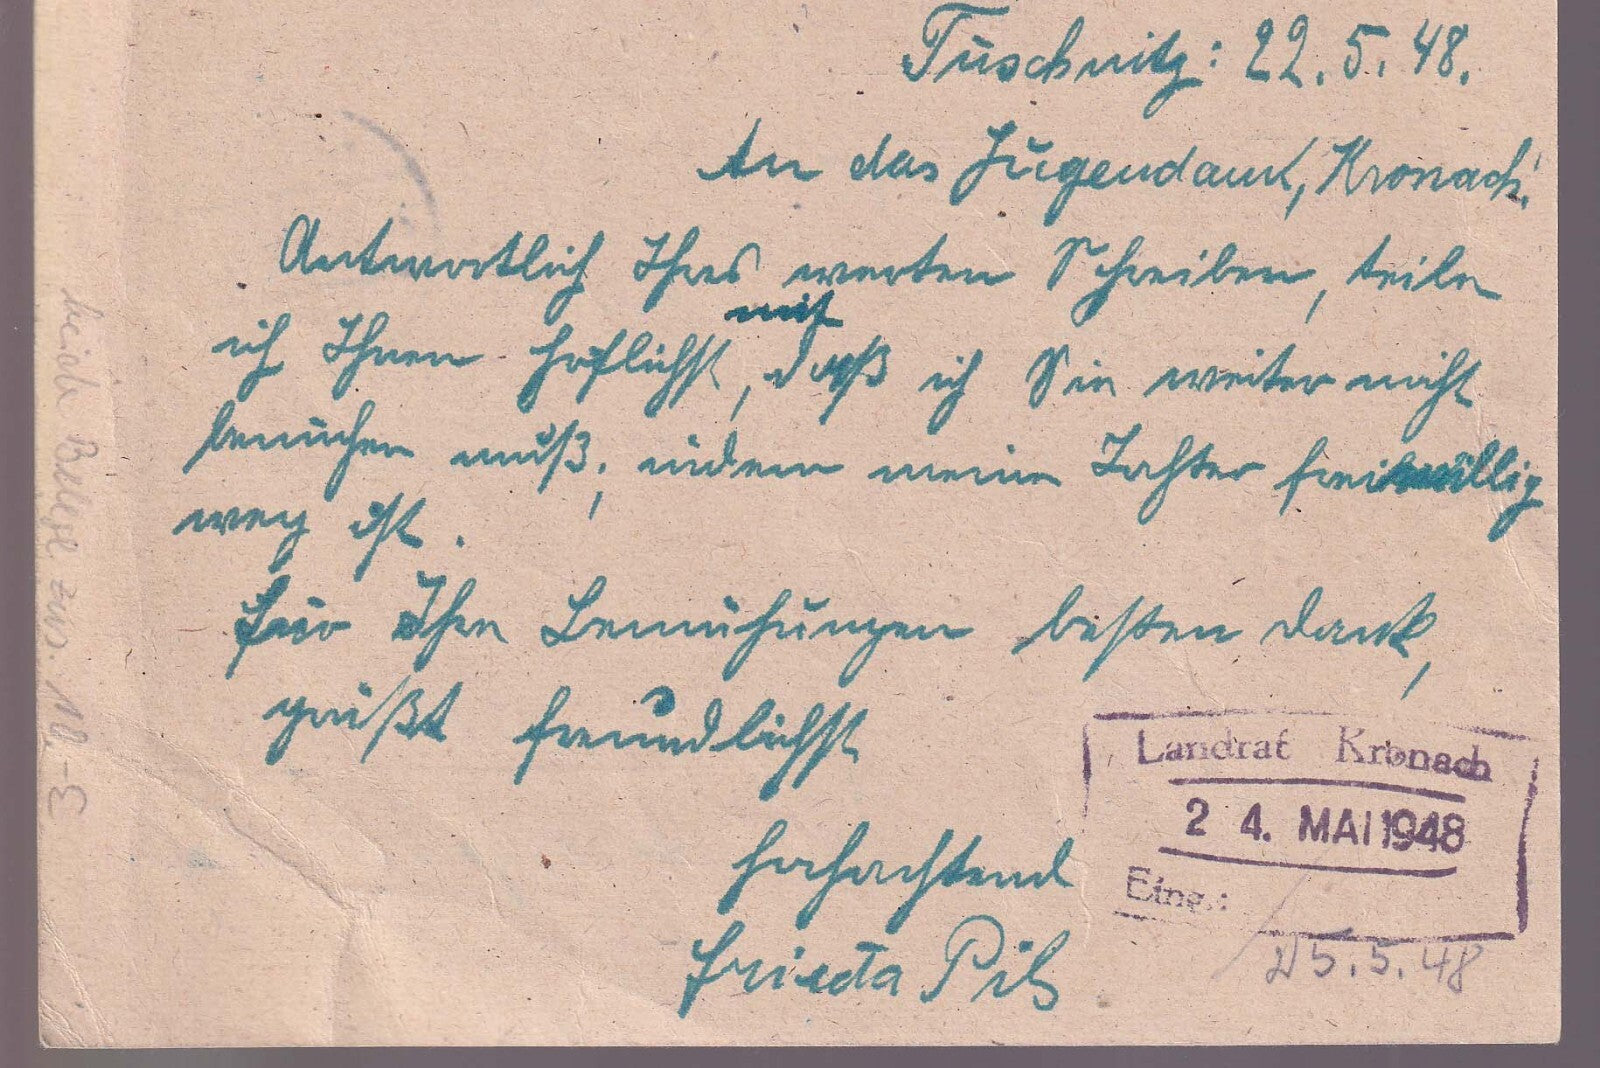 Tüschnitz: 22.5.48.
An das Jugendamt, Kronach!
Antwortlich Ihres werten Schreiben, teile
ich Ihnen höflichst mit, daß ich Sie weiter nicht
brauchen muß, indem meine Tochter freiwillig
weg ist.
Für Ihre Bemühungen besten Dank,
grüßt freundlichst
Hochachtend
Frieda Pilz
Landrat Kronach
24. MAI 1948
Eing.:
25.5.48
beide Belege zus. 10.-€